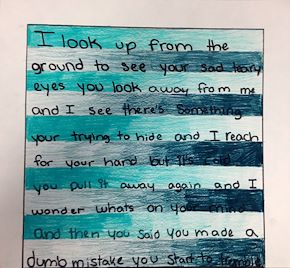 I look up from the
ground to see your sad teary
eyes you look away from me
and I see there's something
your trying to hide and I reach
for your hand but it's cold
you pull it away again and I
wonder whats on your mind
and then you said you made a
dumb mistake you start to tremble